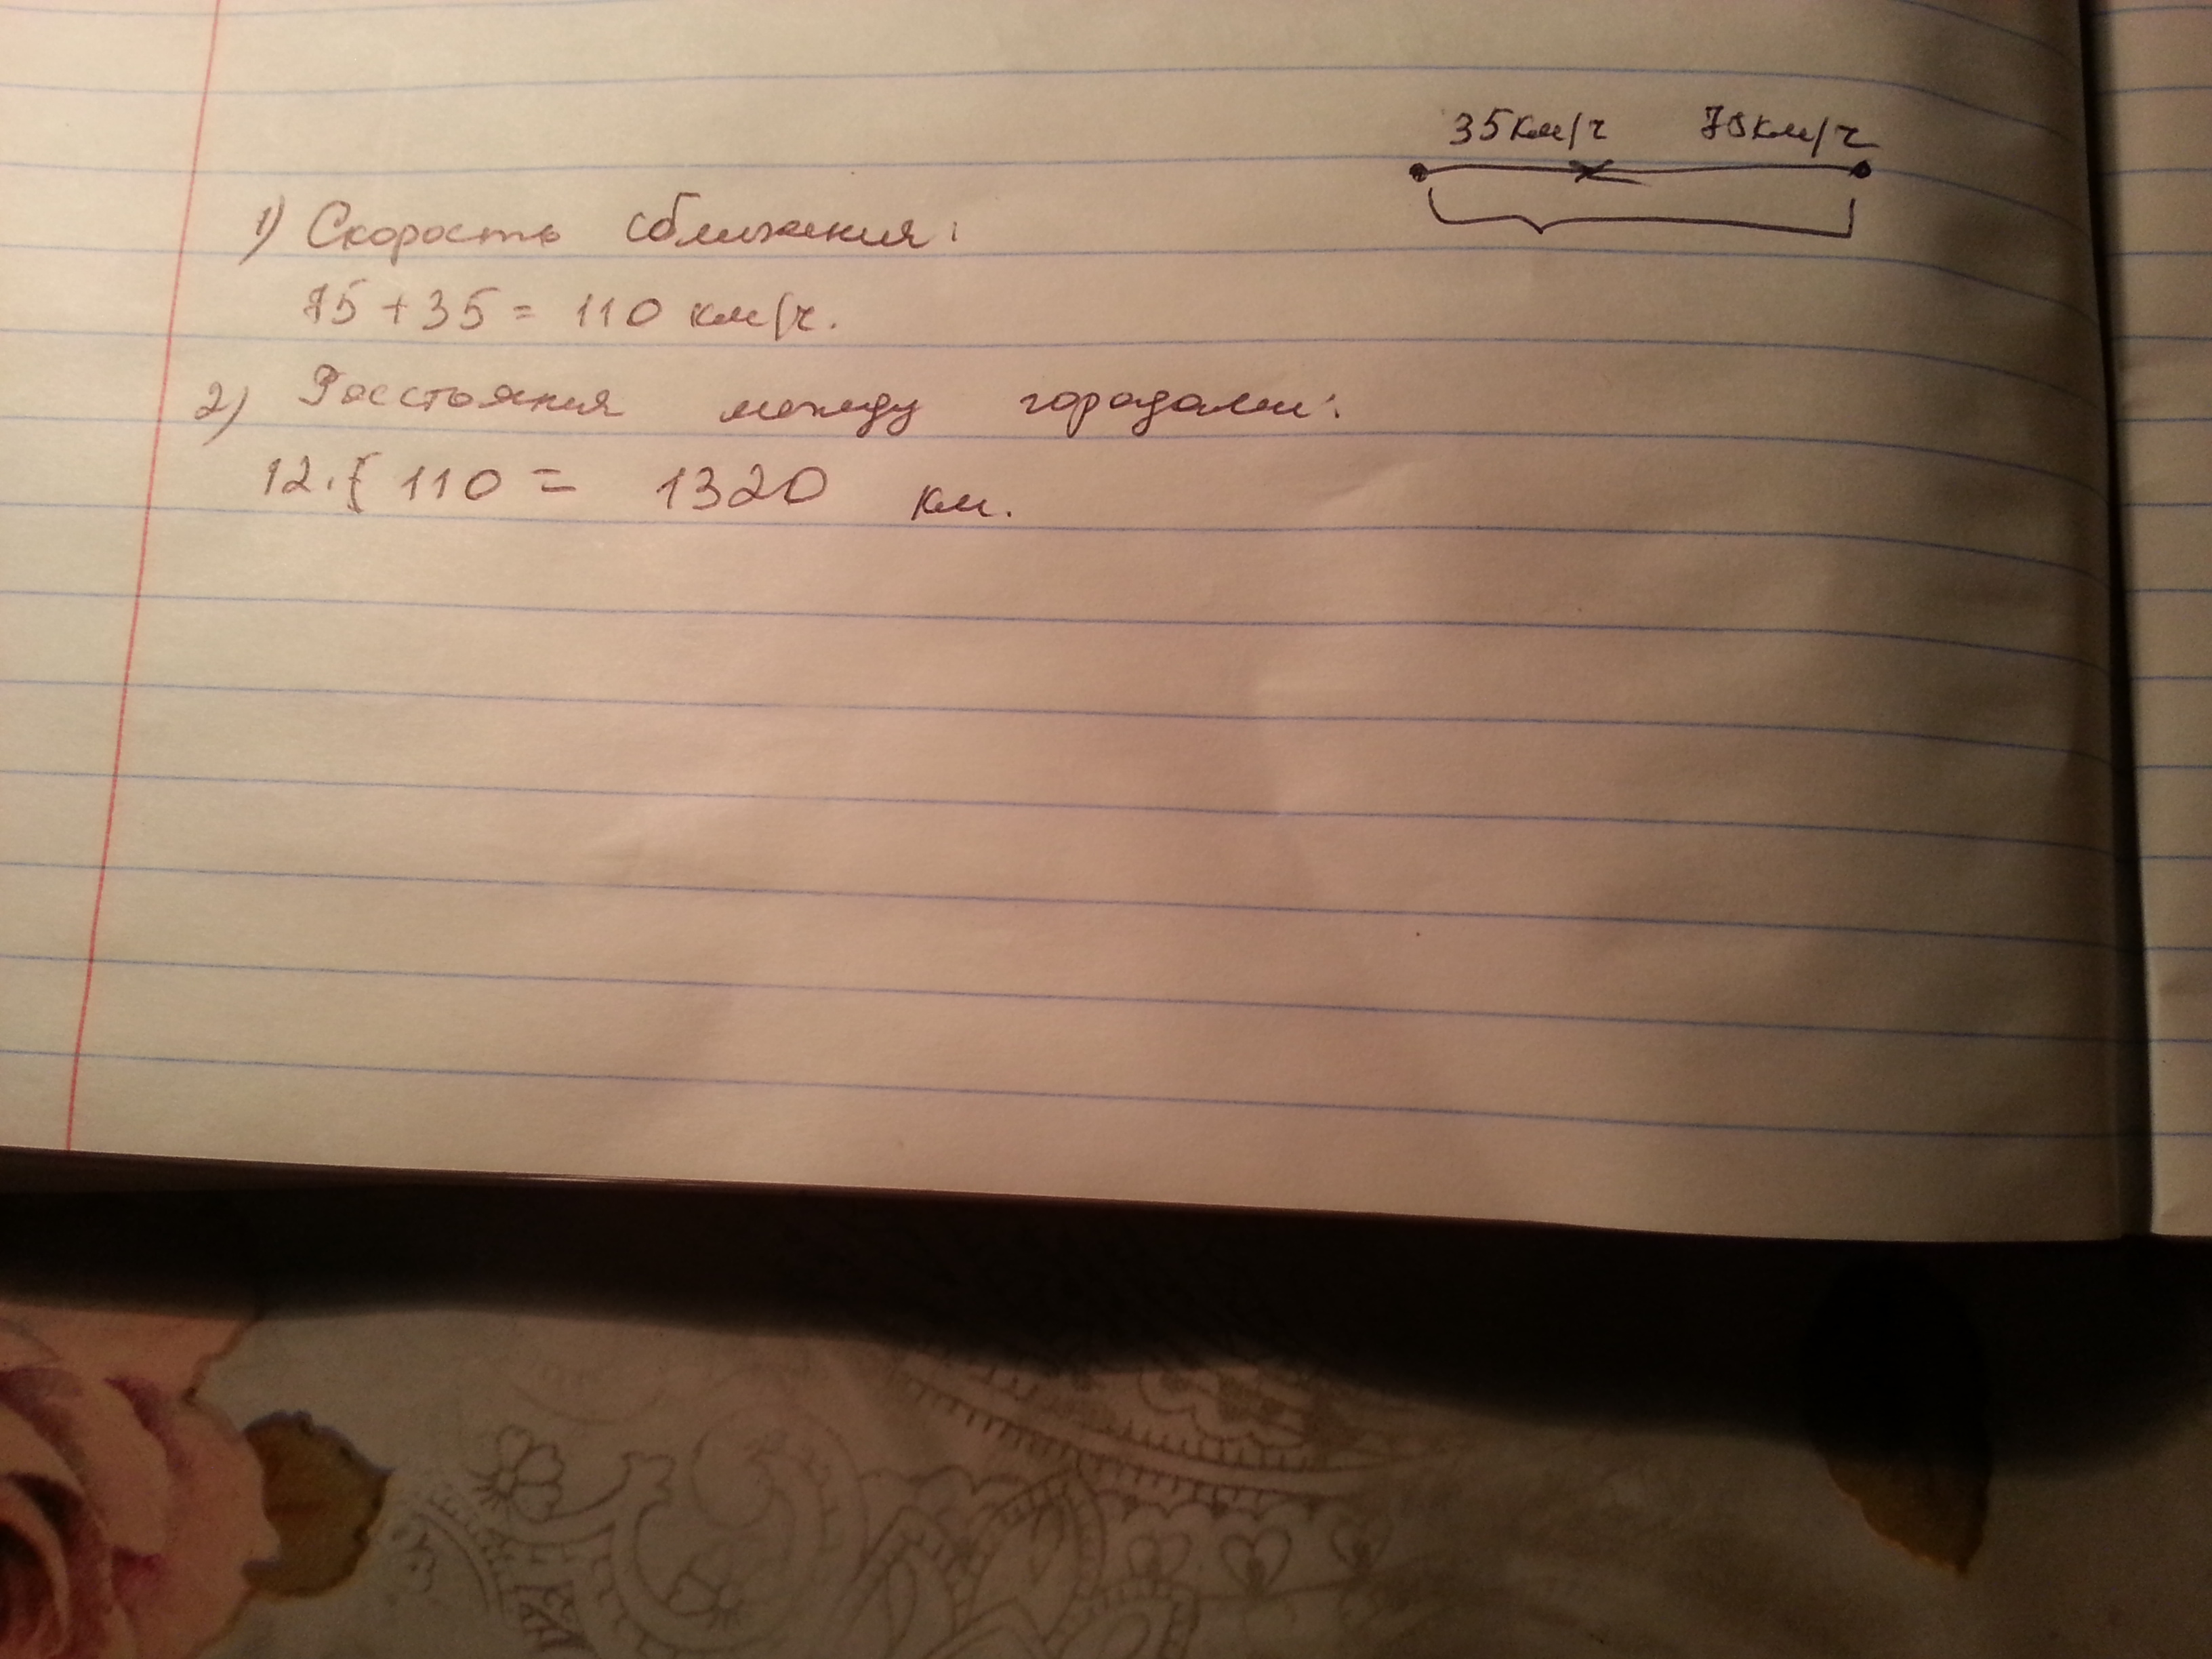 35км/ч 75км/ч
1) Скорость сближения:
75 + 35 = 110 км/ч.
2) Расстояния между городами:
12 · 110 = 1320 км.